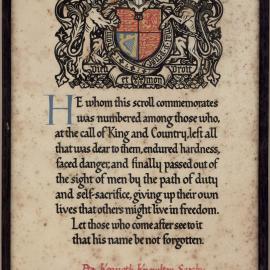 Dieu et mon Droit
HE whom this scroll commemorates
was numbered among those who,
at the call of King and Country, left all
that was dear to them, endured hardness,
faced danger, and finally passed out of
the sight of men by the path of duty
and self-sacrifice, giving up their own
lives that others might live in freedom.
Let those who come after see to it
that his name be not forgotten.
Pte. Kenneth